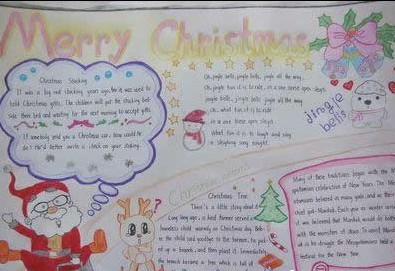 Merry Christmas
Christmas Stocking
It was a big red stocking years ago, for it was used to
hold Christmas gifts. The children will put the stocking bet-
side their bed and waiting for the next morning to accept gifts.
If somebody send you a Christmas car, how could he
do? He'd better write a check on your stocking.
Oh, jingle bells, jingle bells, jingle all the way,
Oh, what fun it is to ride, in a one horse open sleigh
jingle bells, jingle bells jingle all the way
Oh, what fun it is to ride
in a one horse open sleigh
What fun it is to laugh and sing
a sleighing song tonight.
jingle
bells
Christmas
Christmas Tree
There's a little story about it.
Long time ago, a kind farmer served a
homeless child warmly on Christmas day. Befo-
re the child said goodbye to the farmer, he pick-
ed up a branch, and then plant it. Immediately
the branch became a tree which is full of
Many of these traditions began with the M
opotamian celebration of New Years. The Mes
believed in many gods, and as their
chief god - Marduk. Each year as winter arrived
it was believed that Marduk would do battle
with the monsters of chaos. To assist Marduk
in his struggle the Mesopotamians held a
festival for the New Year